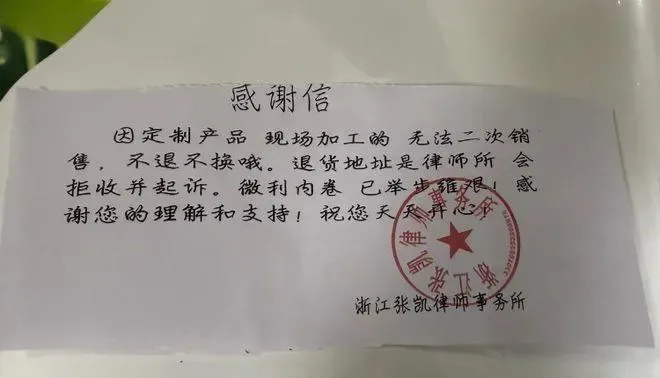 感谢信
因定制产品 现场加工的 无法二次销
售，不退不换哦。退货地址是律师所 会
拒收并起诉。微利内卷 已举步维艰！感
谢您的理解和支持！祝您天天开心！
浙江张凯律师事务所
浙江张凯律师事务所